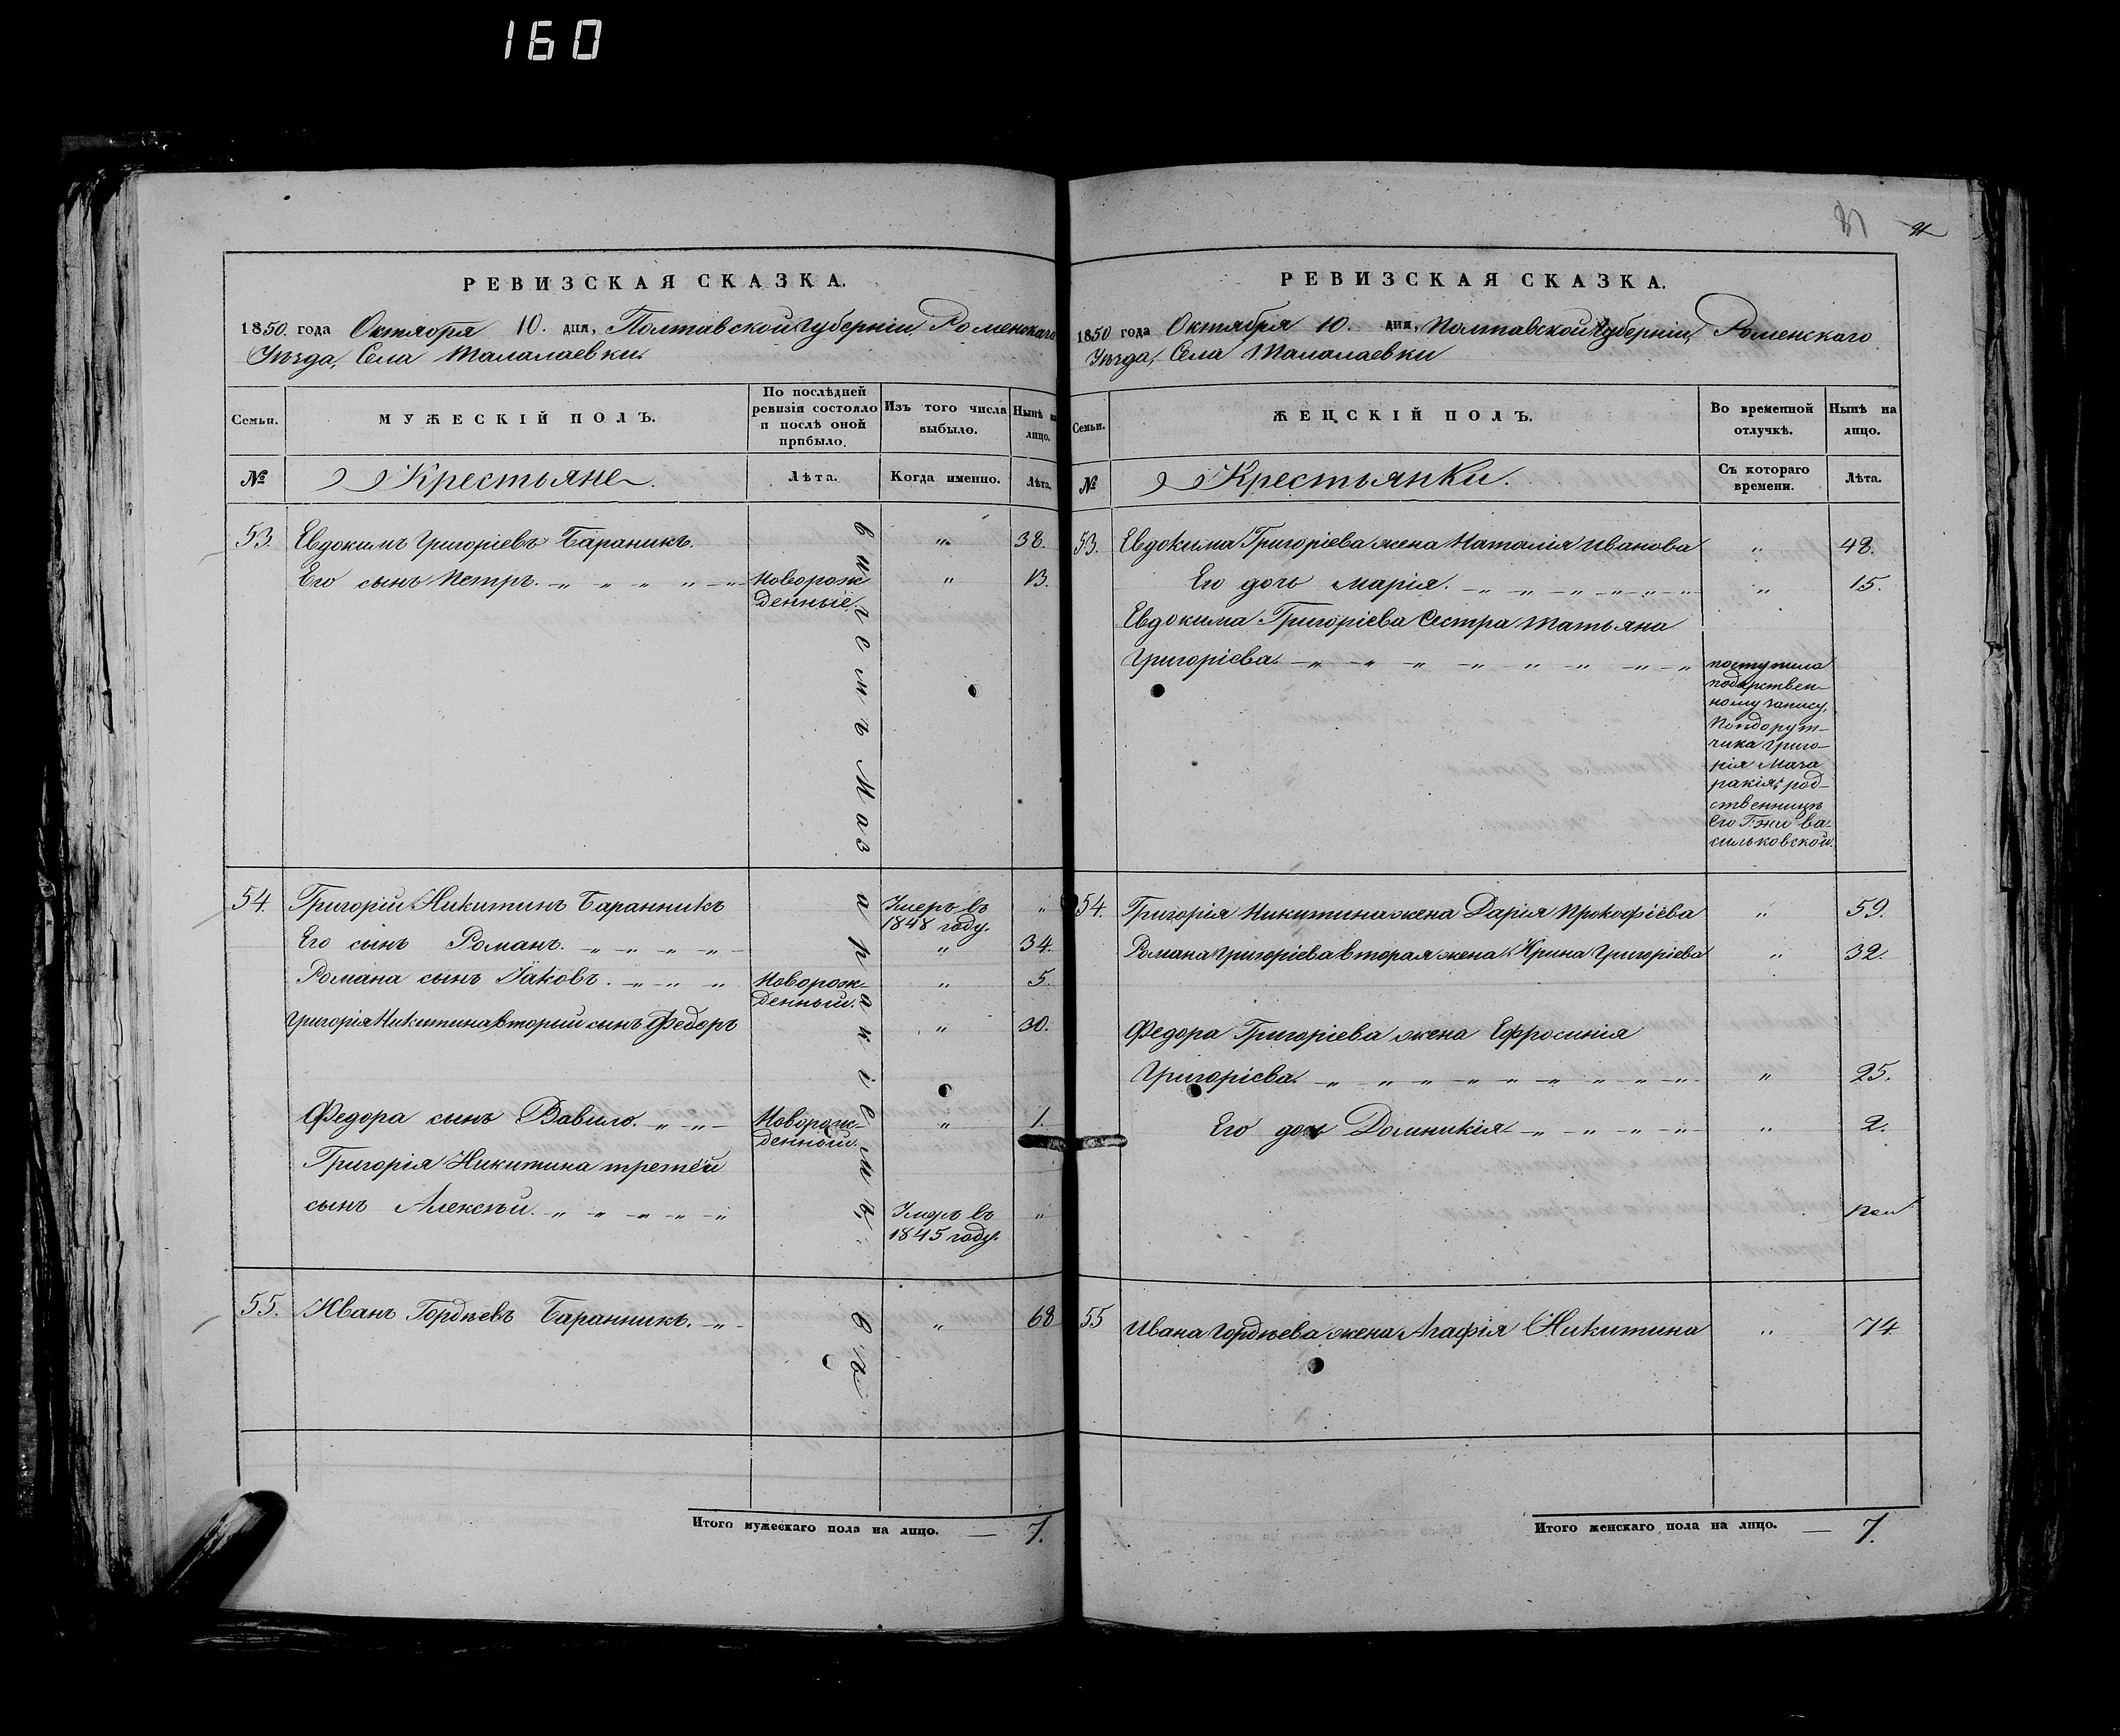 160
РЕВИЗСКАЯ СКАЗКА.
1850 года Октября 10. дня, Полтавской Губерніи, Роменскаго
Уѣзда, Села Талалаевки.
Семьи.
МУЖЕСКІЙ ПОЛЪ.
По послѣдней
ревизіи состояло
и послѣ оной
прибыло.
Изъ того числа
выбыло.
Нынѣ на
лицо.
№
Крестьяне
Лѣта.
Когда именно.
Лѣта.
53. Евдокимъ Григоріевъ Бараникъ. „ 38.
Его сынъ Петръ. Новорож „ 13.
денные.
54. Григорій Никитинъ Баранникъ Умеръ въ „
1848 году.
Его сынъ Романъ. „ 34.
Романа сынъ Іаковъ. Новорож- „ 5.
денный.
Григорія Никитина вторый сынъ Федоръ „ 30.
Федора сынъ Вавило. Новорож- „ 1.
денной.
Григорія Никитина третей
сынъ Алексѣй. Умеръ въ „
1845 году.
55. Иванъ Гордѣевъ Баранникъ. „ 68
Итого мужескаго пола на лицо. — 7.
31
РЕВИЗСКАЯ СКАЗКА.
1850 года Октября 10. дня, Полтавской Губерніи, Роменскаго
Уѣзда, Села Талалаевки
Семьи.
ЖЕНСКІЙ ПОЛЪ.
Во временной
отлучкѣ.
Нынѣ на
лицо.
№
Крестьянки.
Съ котораго
времени.
Лѣта.
53. Евдокима Григоріева жена Наталія Иванова „ 48.
Его дочь Марія. „ 15.
Евдокима Григоріева Сестра Татьяна
Григоріева. поступила
подарствен-
ному запису,
Григо-
рія Маза
ракія, род-
ственницѣ
его Г-жи Ва-
сильковской.
54. Григорія Никитина жена Дарія Прокофіева „ 59.
Романа Григоріева вторая жена Ирина Григоріева „ 32.
Федора Григоріева жена Ефросинія
Григоріева. „ 25.
Его дочь Домникія. „ 2.
55 Ивана Гордѣева жена Агафія Никитина „ 74
Итого женскаго пола на лицо. — 7.